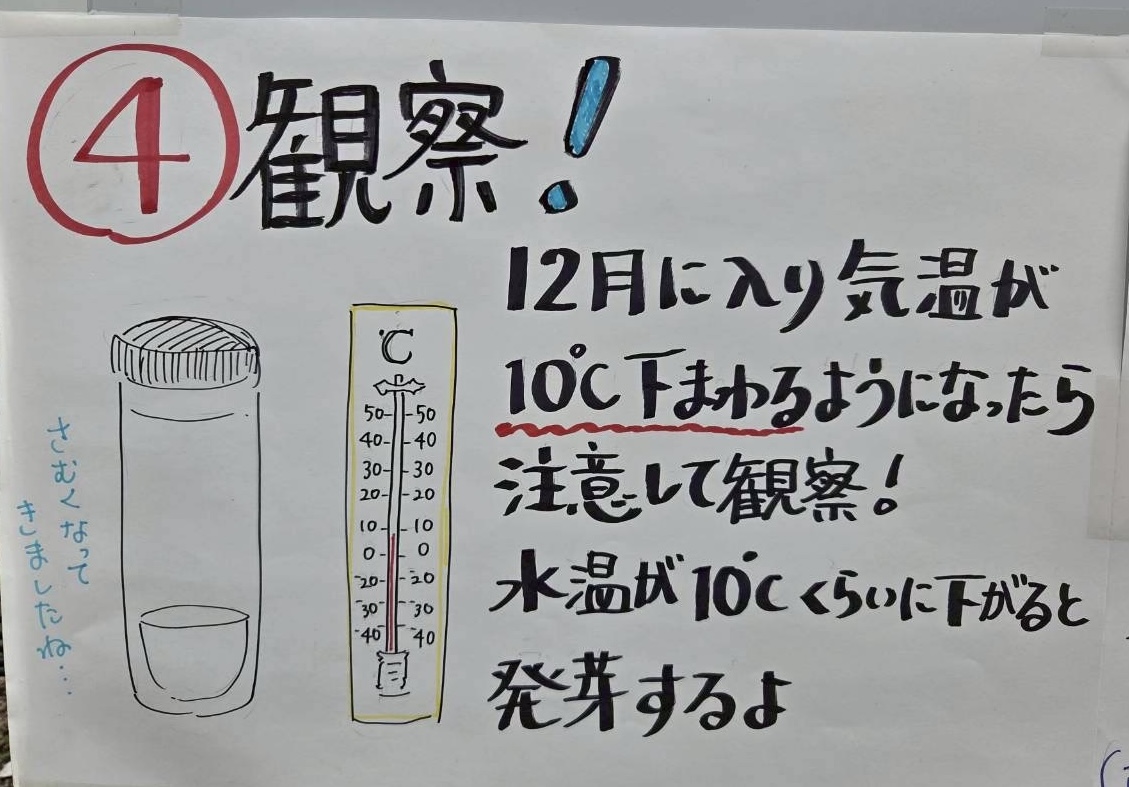 ④観察!
12月に入り気温が
10℃下まわるようになったら
注意して観察!
水温が10℃くらいに下がると
発芽するよ
さむくなって
きましたね…
℃
50 50
40 40
30 30
20 20
10 10
0 0
-20 -20
-30 -30
-40 -40